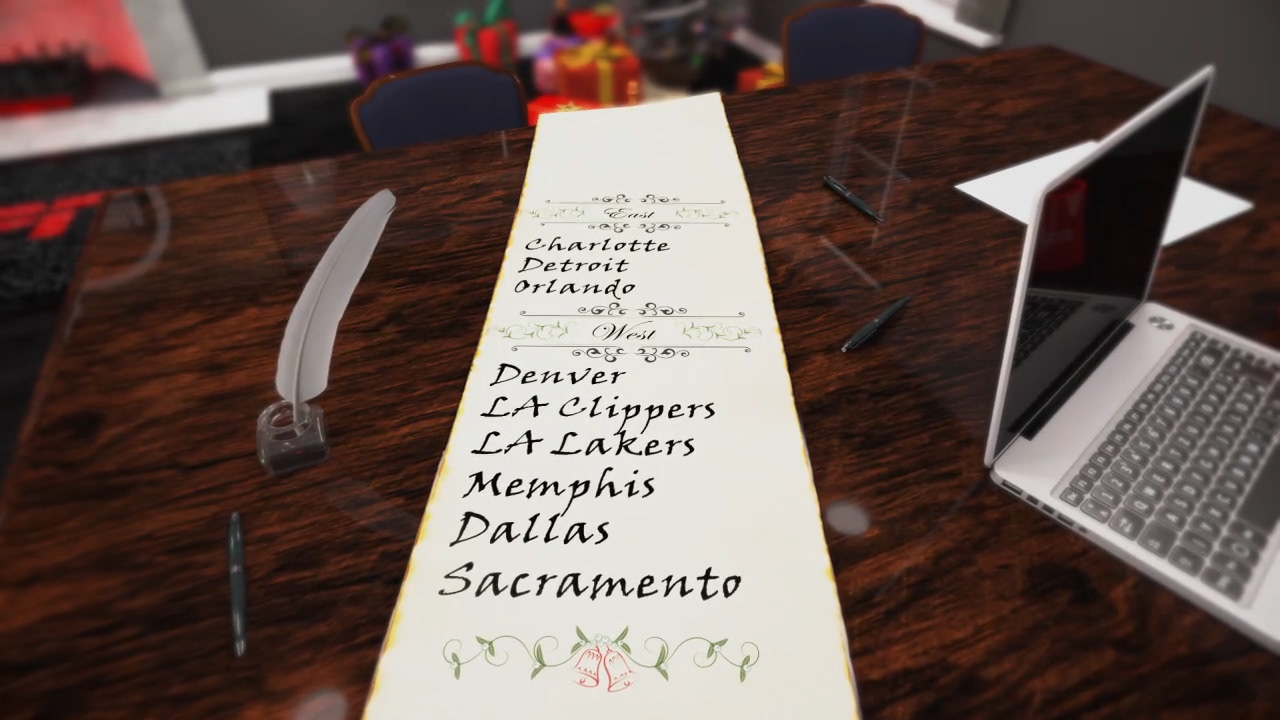 East
Charlotte
Detroit
Orlando
West
Denver
LA Clippers
LA Lakers
Memphis
Dallas
Sacramento